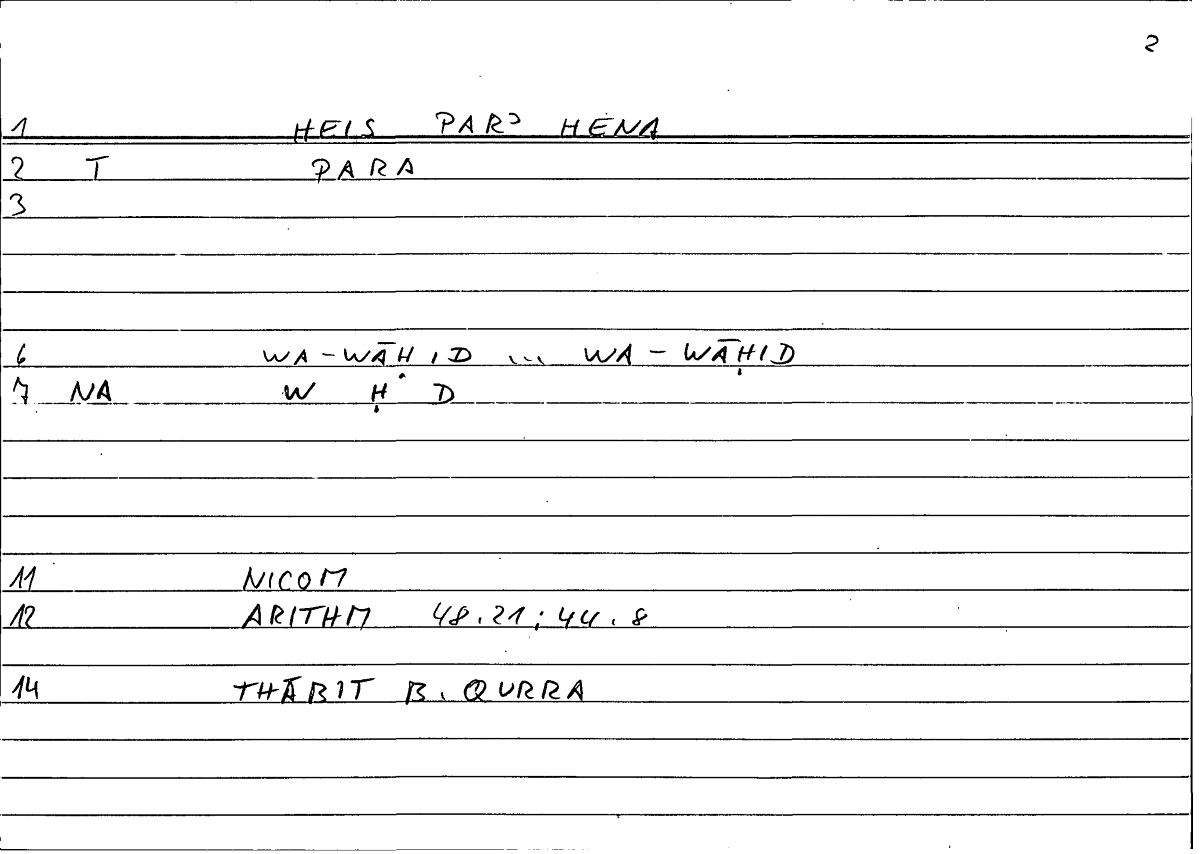 2
1 HEIS PARɔ HENA
2 T PARA
3
6 WA-WĀḤID ... WA-WĀḤID
7 NA W Ḥ D
11 NICOM
12 ARITHM 48.21; 44.8
14 THĀBIT B. QURRA